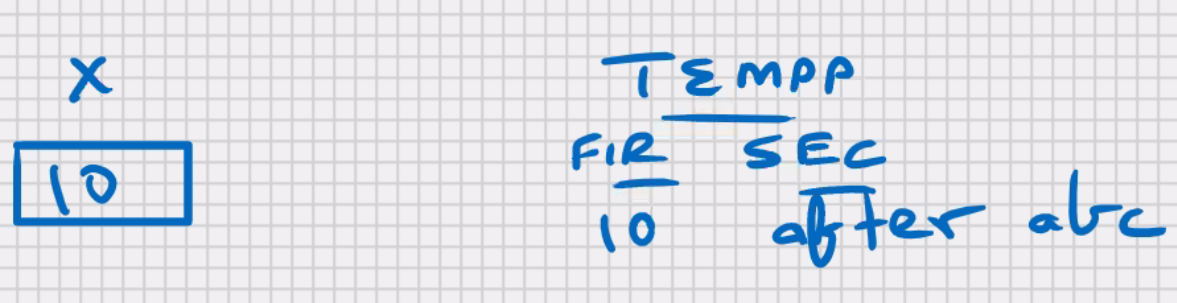 X
10
TEMPP
FIR SEC
10 after abc